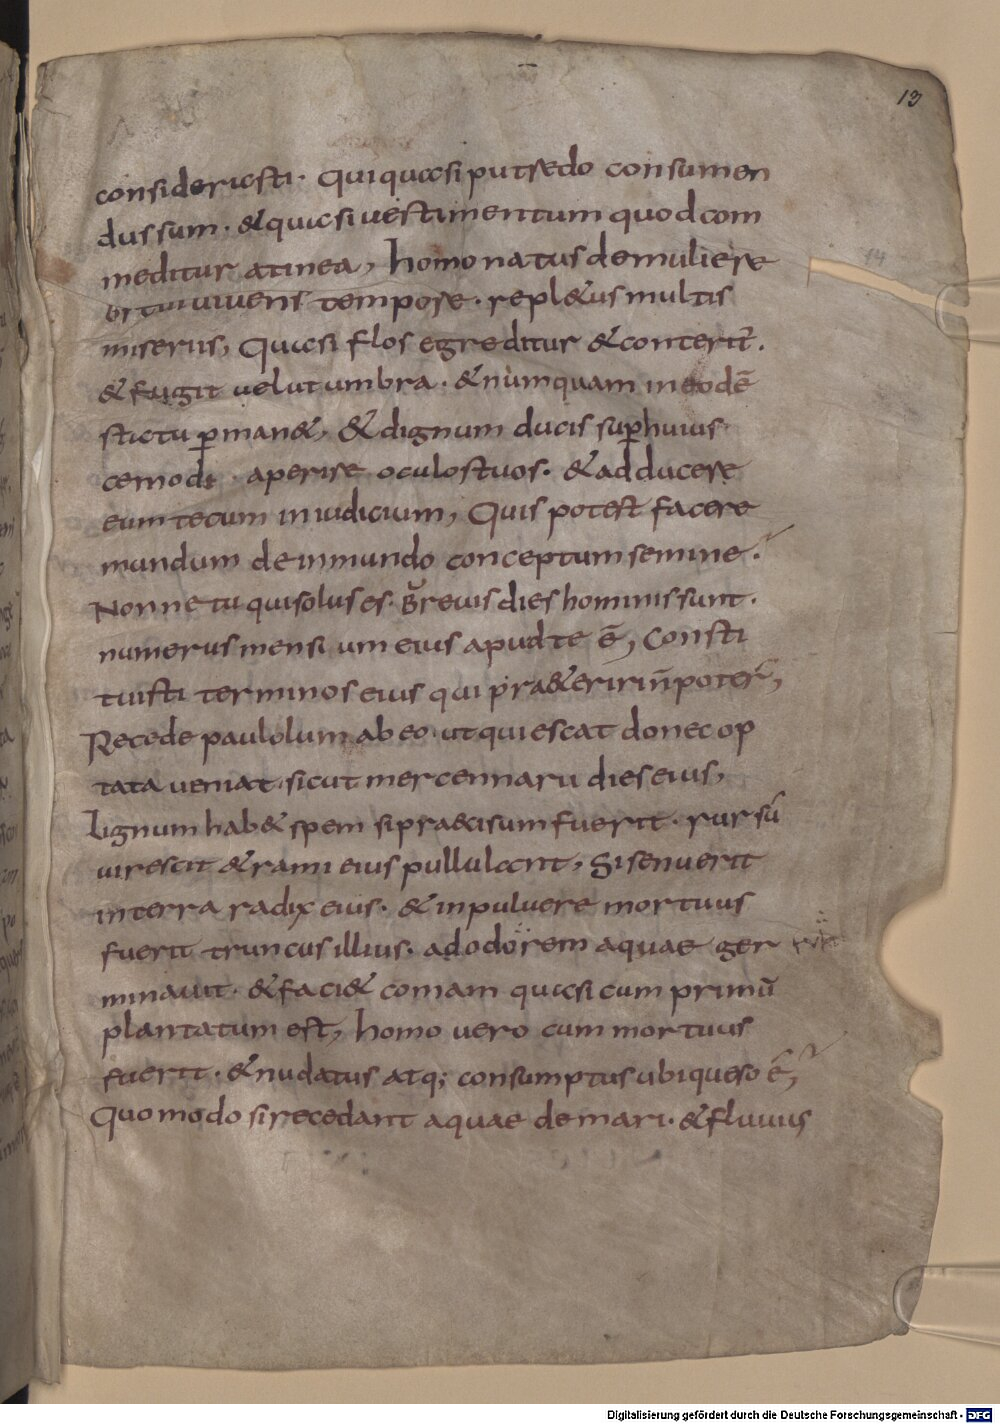 13
considerasti· Qui quasi putredo consumen
dus sum· & quasi uestimentum quod com
meditur a tinea, homo natus de muliere
breui uiuens tempore· repl&us multis
miseriis, Quasi flos egreditur & conterit̄·
& fugit uelut umbra· & numquam in eodē
statu p̱man&, & dignum ducis sup̱ huius
cemodi aperire oculos tuos· & adducere
eum tecum in iudicium, Quis potest facere
mundum de inmundo conceptum semine·
Nonne tu qui solus es· Breuis dies hominis sunt·
numerus mensi um eius apud te ē, Consti
tuisti terminos eius qui praeteriri n̄ poter̄,
Recede paululum ab eo· ut quiescat donec op
tata ueniat· sicut mercennarii dies eius,
Lignum hab& spem si praecisum fuerit· rursū
uirescit & rami eius pullulant, Si senuerit
in terra radix eius· & in puluere mortuus
fuerit truncus illius· ad odorem aquae ger
minauit· & faci& comam quasi cum primū
plantatum est, homo uero cum mortuus
fuerit· & nudatus atq; consumptus ubi queso ē,
Quomodo si recedant aquae de mari· & fluuius
Digitalisierung gefördert durch die Deutsche Forschungsgemeinschaft - DFG